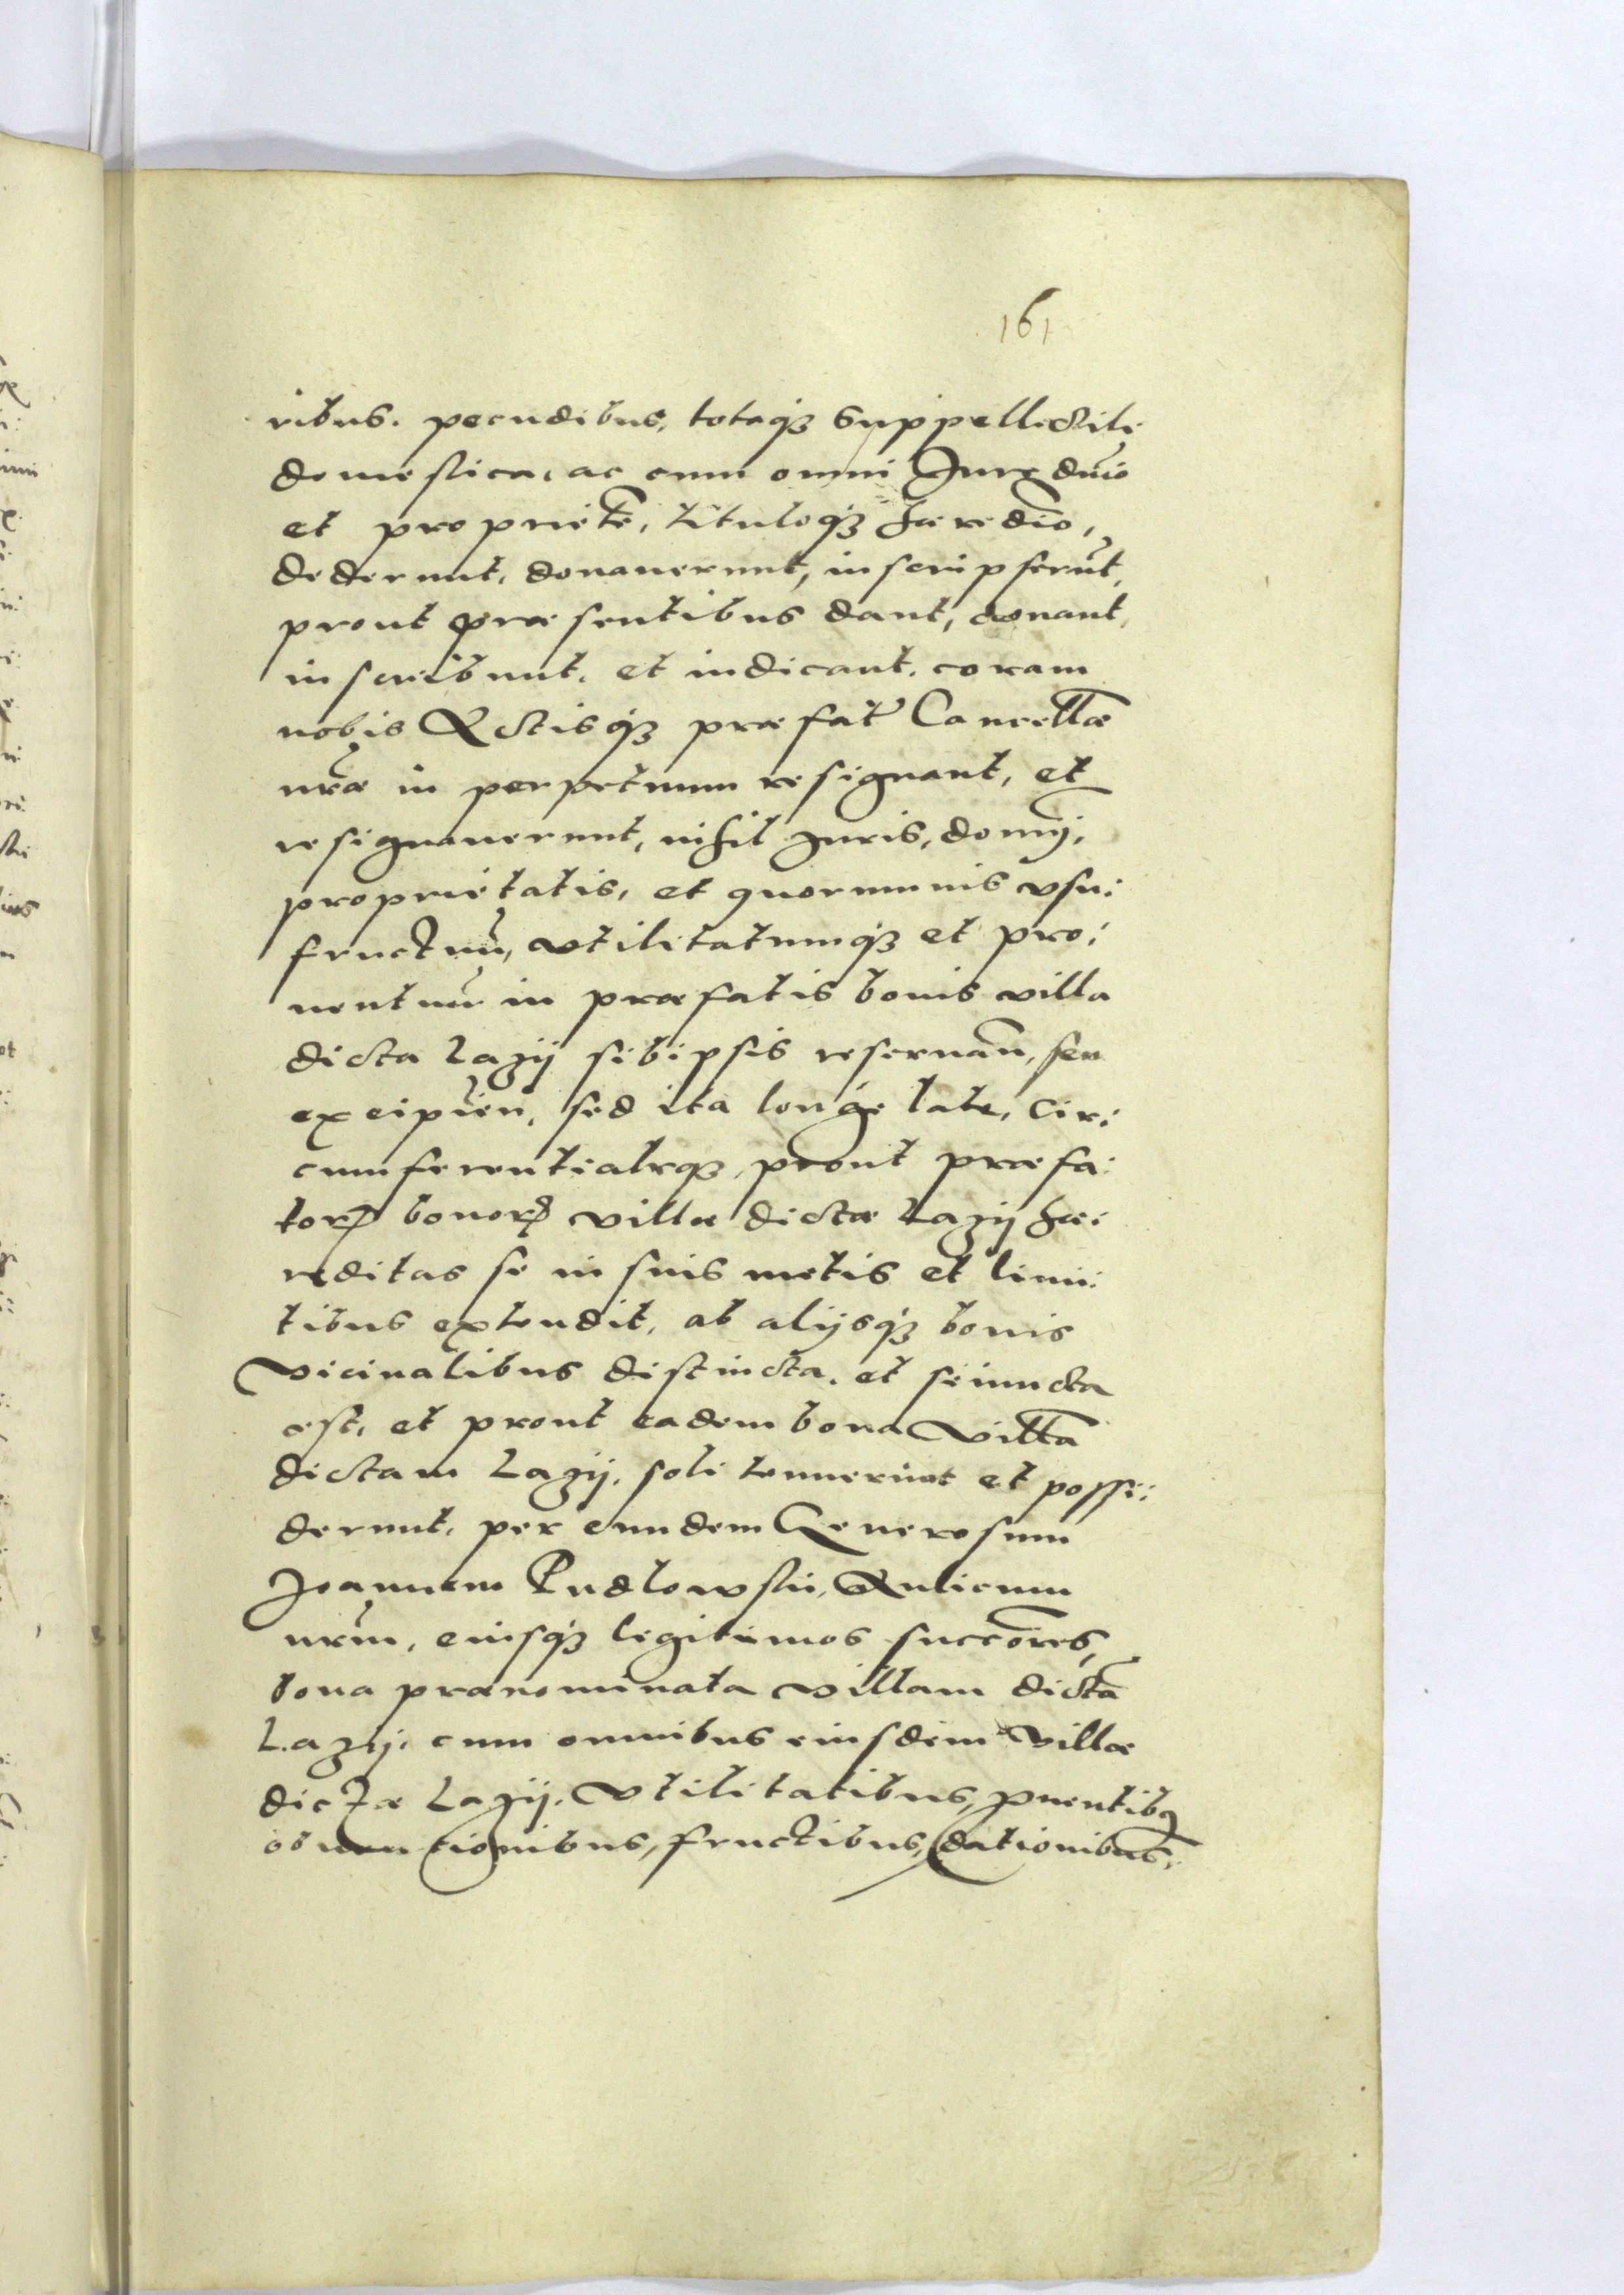 161
ribus. pecudibus, totaqꝫ suppellectile
domestica, ac cum omni Jure dnio
et proprietē, tituloqꝫ haeredio,
dederunt, donauerunt, inscripserūt,
prout praesentibus dant, donant,
inscribunt, et indicant, coram
nobis Actisqꝫ praefat Cancellae
nrae in perpetuum resignant, et
resignauerunt, nihil Juris, domij,
proprietatis, et quorumuis vsu:
fructuū, vtilitatumqꝫ et pro:
uentuū in praefatis bonis villa
dicta Lazij sibiipsis reseruān, seu
excipien, sed ita longe late, Cir:
cumferentialeqꝫ prout praefa:
toꝝ bonoꝝ villae dictae Lazij hae:
reditas se in suis metis et limi:
tibus extendit, ab alijsqꝫ bonis
vicinalibus distincta, et seiuncta
est, et prout eadem bona Villā
dictam Lazij, soli tenuerunt et posse:
derunt, per eundem Generosum
Joannem Pudlowski, Aulicum
nrm, eiusqꝫ legitimos succōres,
bona praenominata villam dictā
Lazij, cum omnibus eiusdem Villae
dictae Lazij, Vtilitatibus, puentibꝯ
obuentionibus, fructibus, dationibus,